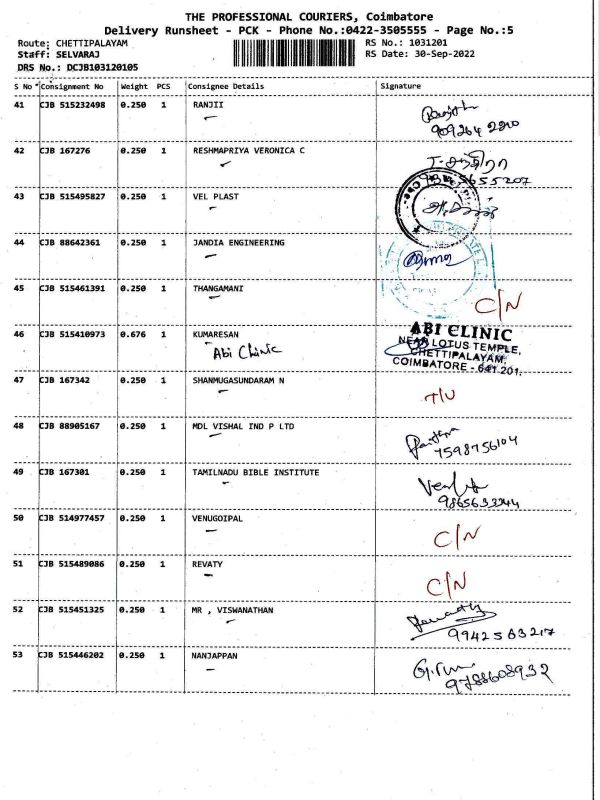 THE PROFESSIONAL COURIERS, Coimbatore
Delivery Runsheet - PCK - Phone No.:0422-3505555 - Page No.:5
Route: CHETTIPALAYAM RS No.: 1031201
Staff: SELVARAJ RS Date: 30-Sep-2022
DRS No.: DCJB103120105
S No Consignment No Weight PCS Consignee Details Signature
41 CJB 515232498 0.250 1 RANJII
42 CJB 167276 0.250 1 RESHMAPRIYA VERONICA C
43 CJB 515495827 0.250 1 VEL PLAST
44 CJB 88642361 0.250 1 JANDIA ENGINEERING
45 CJB 515461391 0.250 1 THANGAMANI C/N
46 CJB 515410973 0.676 1 KUMARESAN
Abi Clinic
ABI CLINIC
NEAR LOTUS TEMPLE,
CHETTIPALAYAM,
COIMBATORE - 641 201.
47 CJB 167342 0.250 1 SHANMUGASUNDARAM N
48 CJB 88905167 0.250 1 MDL VISHAL IND P LTD
7598756104
49 CJB 167301 0.250 1 TAMILNADU BIBLE INSTITUTE
9865633344
50 CJB 514977457 0.250 1 VENUGOIPAL C/N
51 CJB 515489086 0.250 1 REVATY C/N
52 CJB 515451325 0.250 1 MR , VISWANATHAN
9942563217
53 CJB 515446202 0.250 1 NANJAPPAN
9788608932